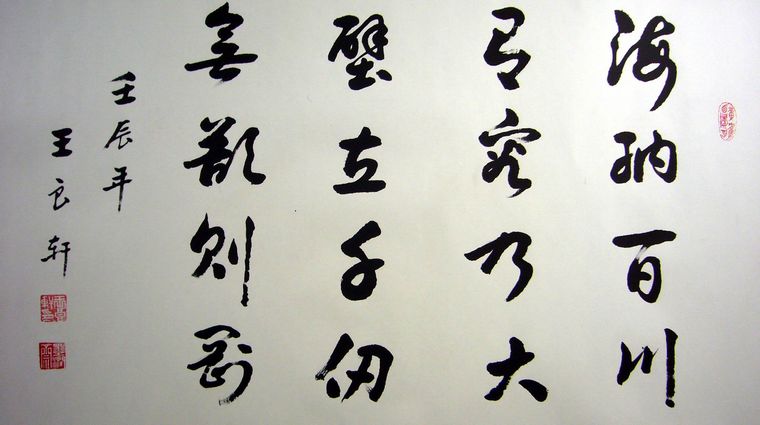 海納百川
有容乃大
壁立千仞
無欲則剛
壬辰年
王良轩